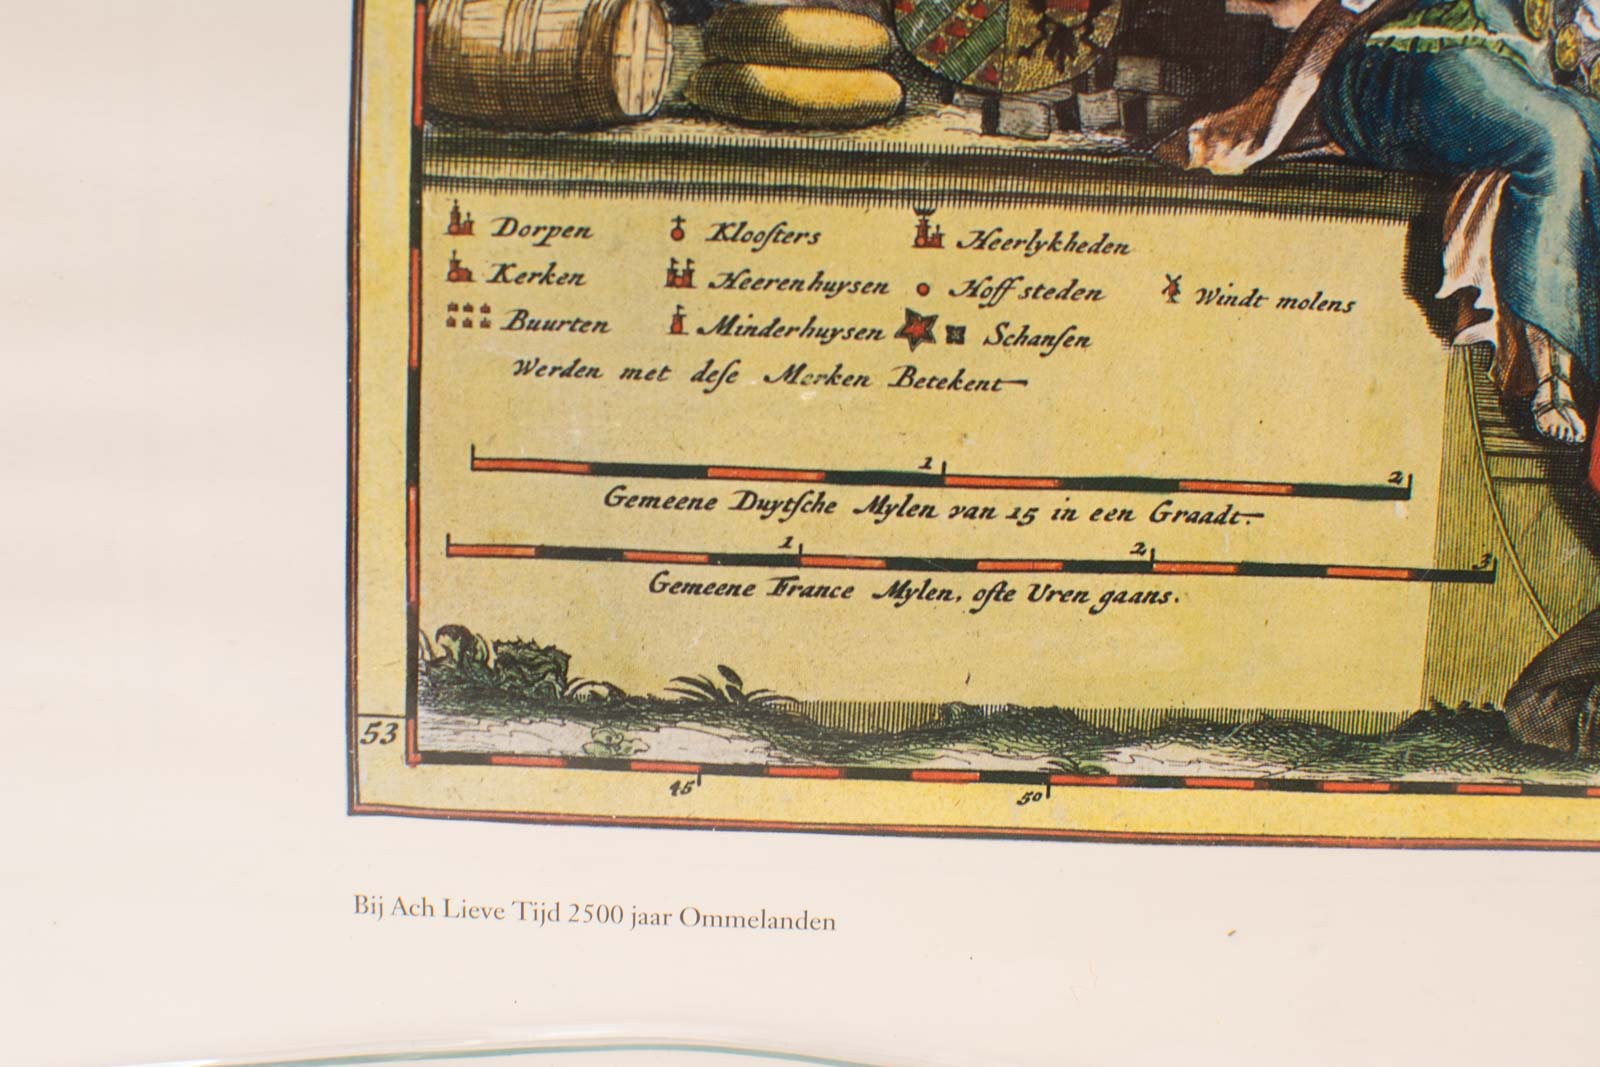 Dorpen Klooſters Heerlykheden
Kerken Heerenhuysen Hoff steden Windt molens
Buurten Minderhuysen Schanſen
Werden met deſe Merken Betekent
1 2
Gemeene Duytſche Mylen van 15 in een Graadt.
1 2 3
Gemeene France Mylen, ofte Uren gaans.
53
45 50
Bij Ach Lieve Tijd 2500 jaar Ommelanden